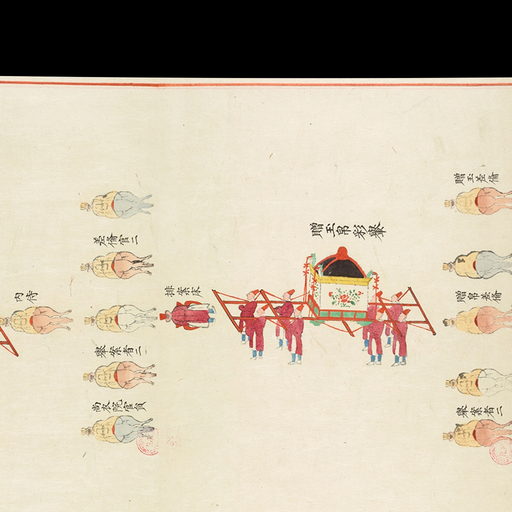 贈玉差備
贈帛差備
擧案者二
贈玉帛彩轝
排案床
差備官二
擧案者二
尚衣院官員
内侍